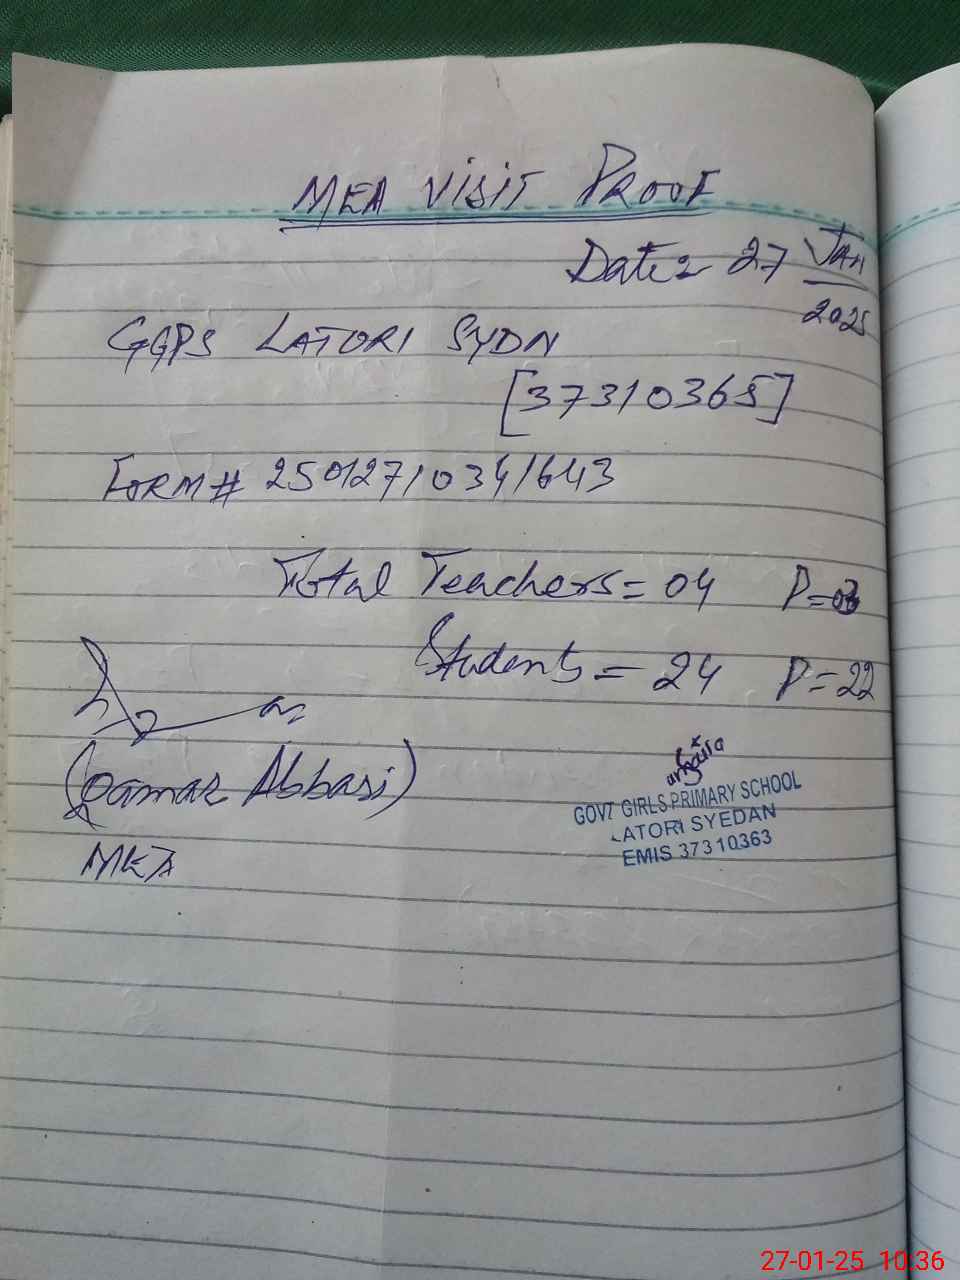 MEA VISIT PROOF
Date: 27 Jan
2025
GGPS LATORI SYDN
[37310365]
FORM# 25012710341643
Total Teachers = 04 P=03
Students = 24 P=22
(Qamar Abbasi)
MEA
GOVT GIRLS PRIMARY SCHOOL
LATORI SYEDAN
EMIS 37310363
27-01-25 10:36